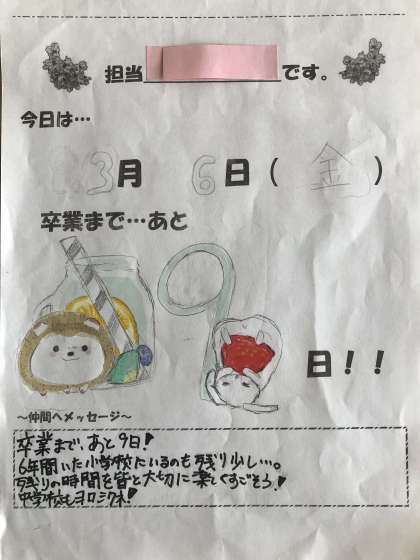 担当 です。
今日は…
3月 6日（ 金 ）
卒業まで…あと
9 日！！
～仲間へメッセージ～
卒業まで、あと9日!
6年間いた小学校にいるのも残り少し…。
残りの時間を皆と大切に楽しくすごそう!
中学校もヨロシクネ!